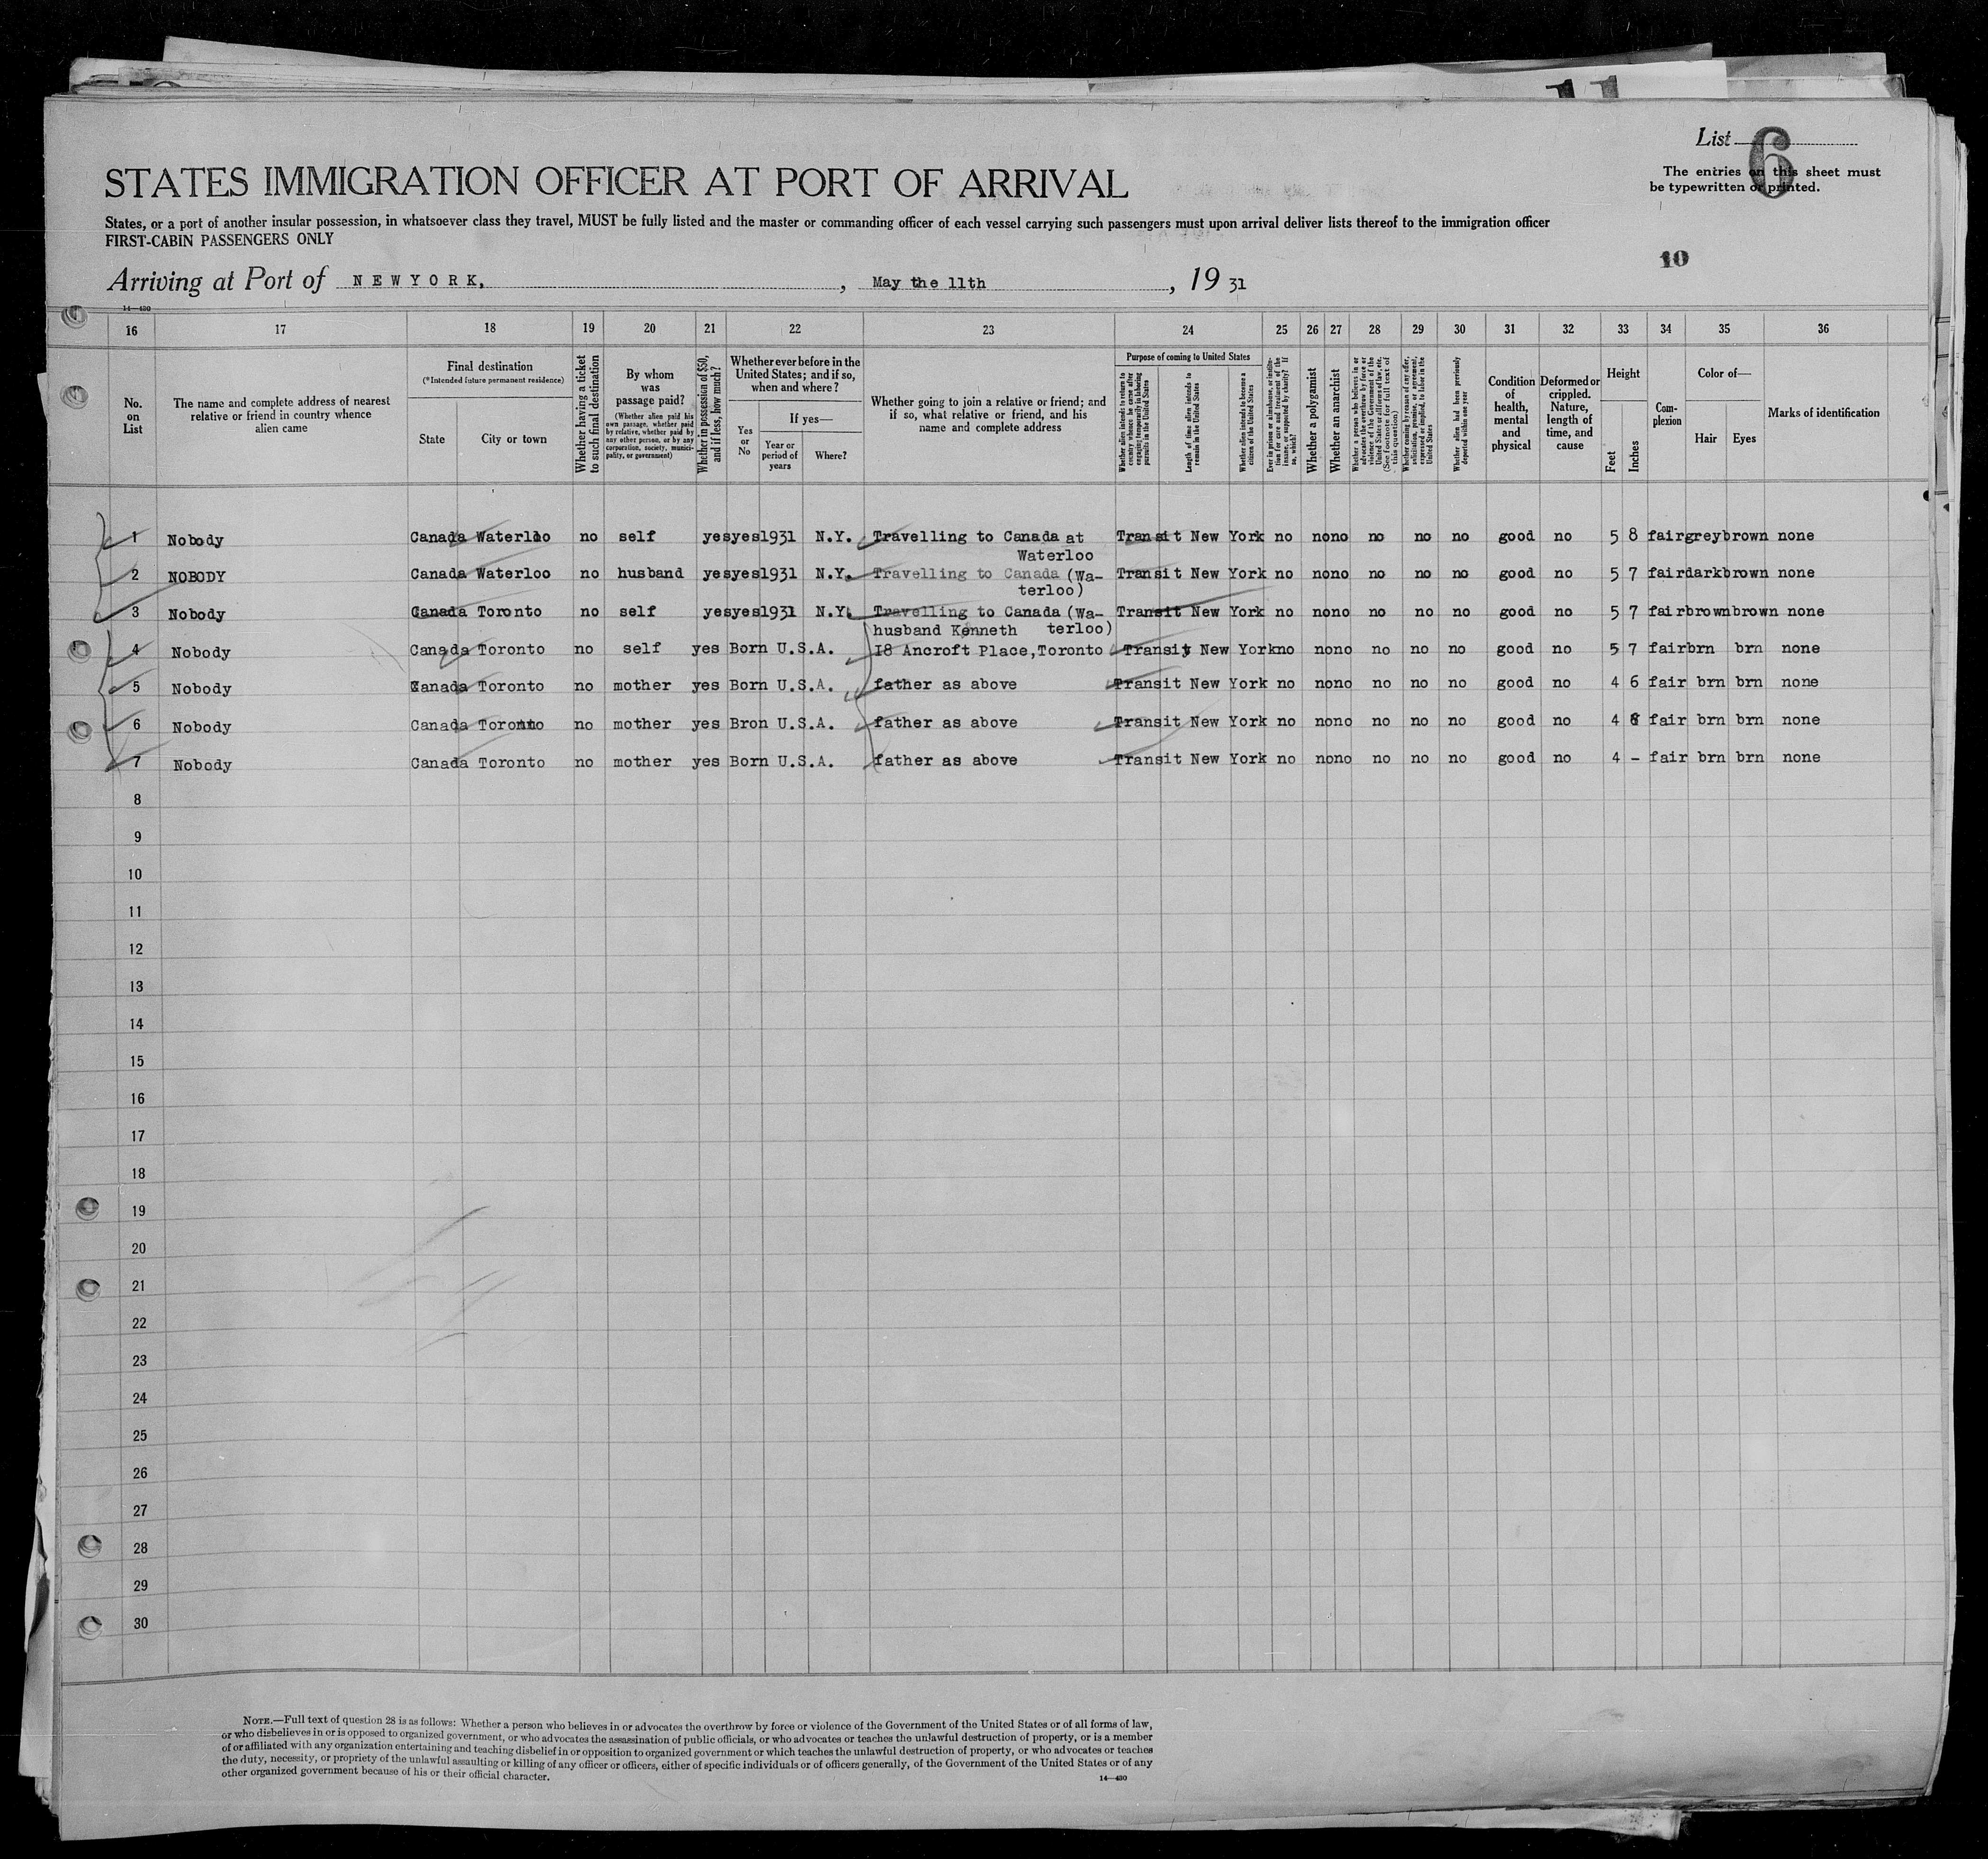 List 6
The entries on this sheet must
be typewritten or printed.
STATES IMMIGRATION OFFICER AT PORT OF ARRIVAL
States, or a port of another insular possession, in whatsoever class they travel, MUST be fully listed and the master or commanding officer of each vessel carrying such passengers must upon arrival deliver lists thereof to the immigration officer
FIRST-CABIN PASSENGERS ONLY
10
Arriving at Port of NEWYORK, , May the 11th , 19 31
14—430
16 17 18 19 20 21 22 23 24 25 26 27 28 29 30 31 32 33 34 35 36
No. on List
The name and complete address of nearest relative or friend in country whence alien came
Final destination
(*Intended future permanent residence)
State
City or town
Whether having a ticket to such final destination
By whom was passage paid?
(Whether alien paid his own passage, whether paid by relative, whether paid by any other person, or by any corporation, society, municipality, or government)
Whether in possession of $50, and if less, how much?
Whether ever before in the United States; and if so, when and where?
Yes or No
If yes—
Year or period of years
Where?
Whether going to join a relative or friend; and if so, what relative or friend, and his name and complete address
Purpose of coming to United States
Whether alien intends to return to country whence he came after engaging temporarily in laboring pursuits in the United States
Length of time alien intends to remain in the United States
Whether alien intends to become a citizen of the United States
Ever in prison or almshouse, or institution for care and treatment of the insane, or supported by charity? If so, which?
Whether a polygamist
Whether an anarchist
Whether a person who believes in or advocates the overthrow by force or violence of the Government of the United States or all forms of law, etc. (See footnote for full text of this question)
Whether coming by reason of any offer, solicitation, promise, or agreement, expressed or implied, to labor in the United States
Whether alien had been previously deported within one year
Condition of health, mental and physical
Deformed or crippled. Nature, length of time, and cause
Height
Feet
Inches
Complexion
Color of—
Hair
Eyes
Marks of identification
1 Nobody Canada Waterloo no self yes yes 1931 N.Y. Travelling to Canada at Transit New York no no no no no no good no 5 8 fair grey brown none
Waterloo
2 NOBODY Canada Waterloo no husband yes yes 1931 N.Y. Travelling to Canada (Wa- Transit New York no no no no no no good no 5 7 fair dark brown none
terloo)
3 Nobody Canada Toronto no self yes yes 1931 N.Y. Travelling to Canada (Wa- Transit New York no no no no no no good no 5 7 fair brown brown none
husband Kenneth terloo)
4 Nobody Canada Toronto no self yes Born U.S.A. 18 Ancroft Place, Toronto Transit New York no no no no no no good no 5 7 fair brn brn none
5 Nobody Canada Toronto no mother yes Born U.S.A. father as above Transit New York no no no no no no good no 4 6 fair brn brn none
6 Nobody Canada Toronto no mother yes Bron U.S.A. father as above Transit New York no no no no no no good no 4 fair brn brn none
7 Nobody Canada Toronto no mother yes Born U.S.A. father as above Transit New York no no no no no no good no 4 - fair brn brn none
8
9
10
11
12
13
14
15
16
17
18
19
20
21
22
23
24
25
26
27
28
29
30
NOTE.—Full text of question 28 is as follows: Whether a person who believes in or advocates the overthrow by force or violence of the Government of the United States or of all forms of law,
or who disbelieves in or is opposed to organized government, or who advocates the assassination of public officials, or who advocates or teaches the unlawful destruction of property, or is a member
of or affiliated with any organization entertaining and teaching disbelief in or opposition to organized government or which teaches the unlawful destruction of property, or who advocates or teaches
the duty, necessity, or propriety of the unlawful assaulting or killing of any officer or officers, either of specific individuals or of officers generally, of the Government of the United States or of any
other organized government because of his or their official character.
14—430